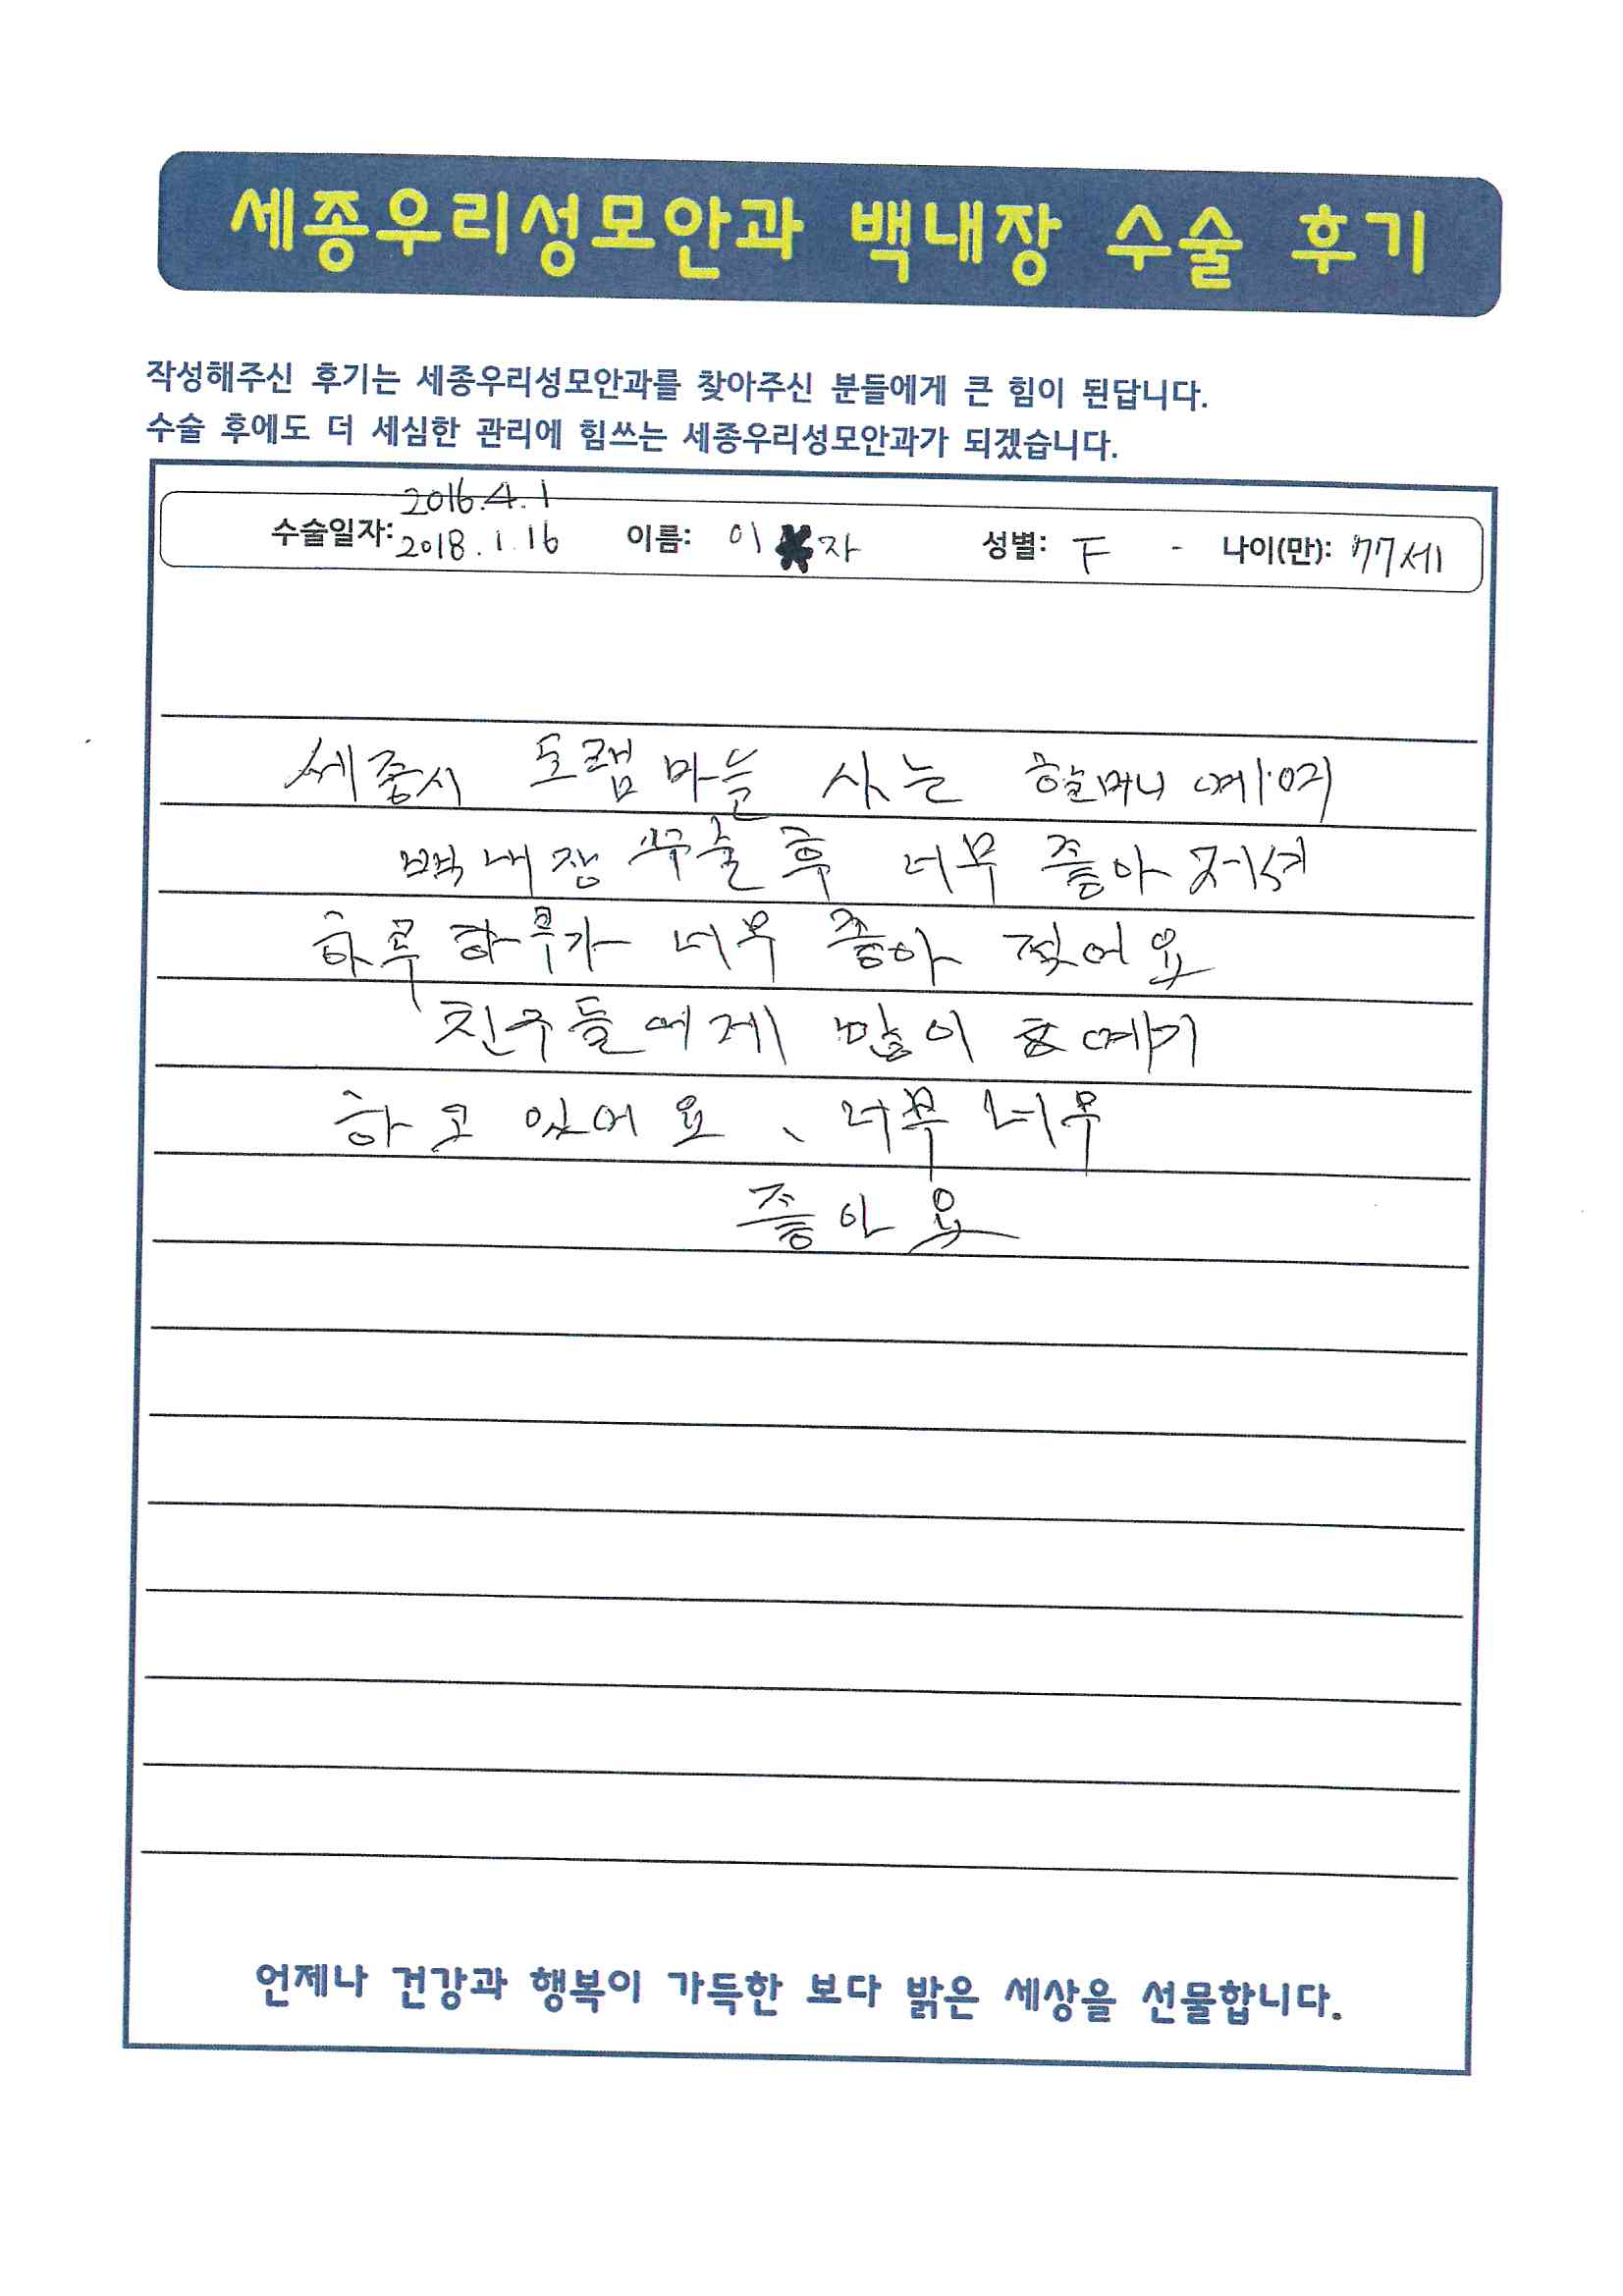 세종우리성모안과 백내장 수술 후기
작성해주신 후기는 세종우리성모안과를 찾아주신 분들에게 큰 힘이 된답니다.
수술 후에도 더 세심한 관리에 힘쓰는 세종우리성모안과가 되겠습니다.
2016.4.1
수술일자: 2018.1.16 이름: 이 자 성별: F - 나이(만): 77세
세종시 도램마늘 사는 할머니예
백내장 수술후 너무 좋아저서
하루하루가 너무 좋아 젔어요
친구들에게 많이 얘기
하고 있어요、 너무 너무
좋아요
언제나 건강과 행복이 가득한 보다 밝은 세상을 선물합니다.